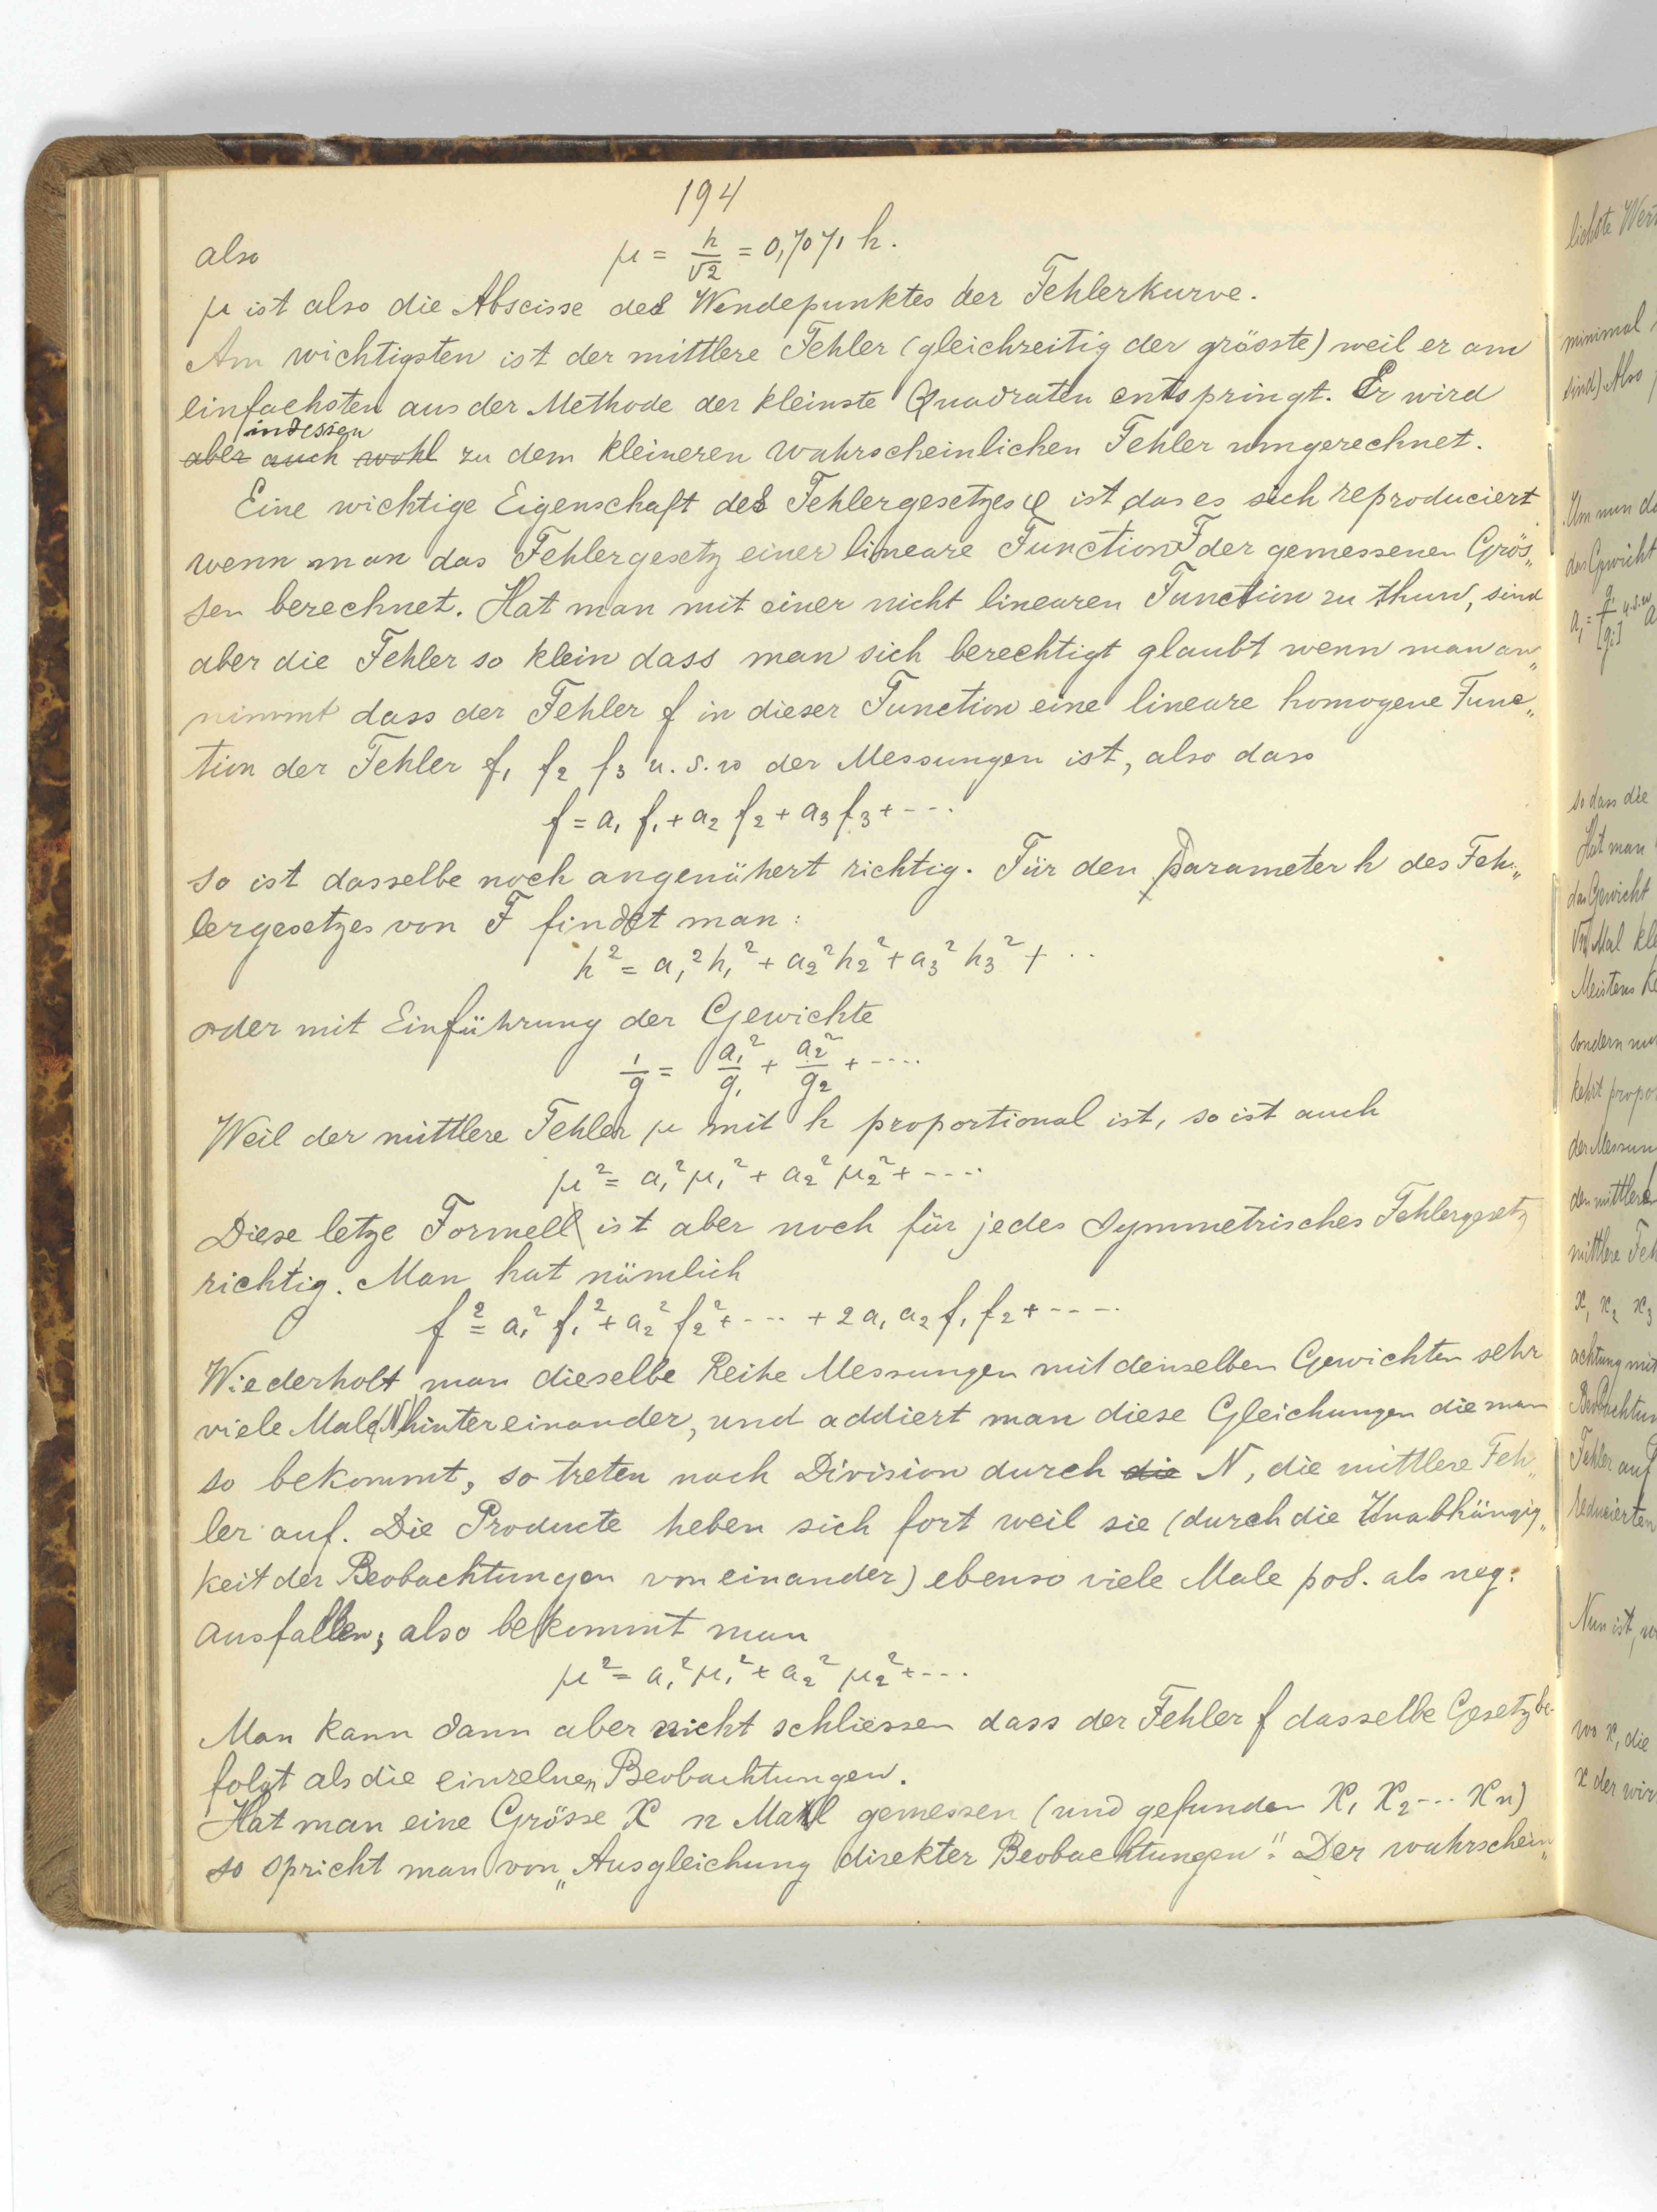 194
also μ = h/√2 = 0,7071 h.
μ ist also die Abscisse des Wendepunktes der Fehlerkurve.
Am wichtigsten ist der mittlere Fehler (gleichzeitig der grösste) weil er am
einfachsten aus der Methode der kleinste Quadraten entspringt. Er wird
indessen
aber auch wohl zu dem kleineren wahrscheinlichen Fehler umgerechnet.
Eine wichtige Eigenschaft des Fehlergesetzes φ ist das es sich reproduciert
wenn man das Fehlergesetz einer lineare Function F der gemessenen Grös„
sen berechnet. Hat man mit einer nicht linearen Function zu thun, sind
aber die Fehler so klein dass man sich berechtigt glaubt wenn man an„
nimmt dass der Fehler f in dieser Function eine lineare homogene Func„
tion der Fehler f₁ f₂ f₃ u.s.w der Messungen ist, also dass
f = a₁ f₁ + a₂ f₂ + a₃ f₃ + ---
so ist dasselbe noch angenähert richtig. Für den Parameter h des Feh„
lergesetzes von F findet man:
h² = a₁² h₁² + a₂² h₂² + a₃² h₃² + ..
oder mit Einführung der Gewichte
1/g = a₁²/g₁ + a₂²/g₂ + ----
Weil der mittlere Fehler μ mit h proportional ist, so ist auch
μ² = a₁² μ₁² + a₂² μ₂² + ----
Diese letze Formel ist aber noch für jedes symmetrisches Fehlergesetz
richtig. Man hat nämlich
f² = a₁² f₁² + a₂² f₂² + --- + 2 a₁ a₂ f₁ f₂ + ----
Wiederholt man dieselbe Reihe Messungen mit denselben Gewichten sehr
viele Male (N) hintereinander, und addiert man diese Gleichungen die man
so bekommt, so treten nach Division durch die N, die mittlere Feh„
ler auf. Die Producte heben sich fort weil sie (durch die Unabhängig„
keit der Beobachtungen von einander) ebenso viele Male pos. als neg.
ausfallen; also bekommt man
μ² = a₁² μ₁² + a₂² μ₂² + ---
Man kann dann aber nicht schliessen dass der Fehler f dasselbe Gesetz be-
folgt als die einzelnen Beobachtungen.
Hat man eine Grösse x n Mal gemessen (und gefunden x₁ x₂ --- xₙ)
so spricht man von „Ausgleichung direkter Beobachtungen". Der wahrschein„
lichste Wert
minimal
sind). Also
Um nun
das Gewicht
so dass die
Hat man
das Gewicht
Meistens
sondern
der Messun
den mittlere
mittlere Feh
x₁ x₂ x₃
achtung mit
Beobachtun
Fehler auf
reducierten
Nun ist,
wo x, die
x der wir